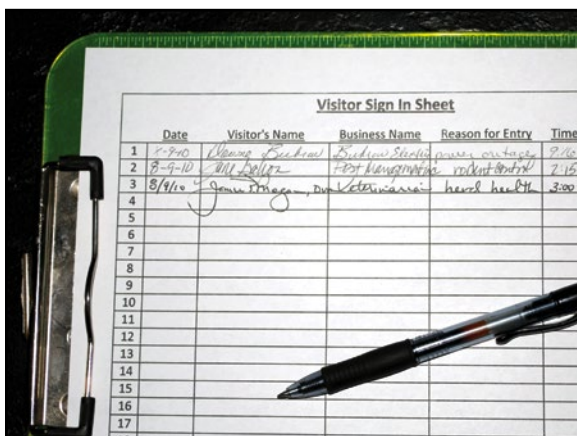 Visitor Sign In Sheet
Date Visitor's Name Business Name Reason for Entry Time
1 8-9-10 Donna power outage
2 8-9-10 Pest Management rodent control 2:15
3 8/9/10 James DVM Veterinarian herd health 3:00
4
5
6
7
8
9
10
11
12
13
14
15
16
17